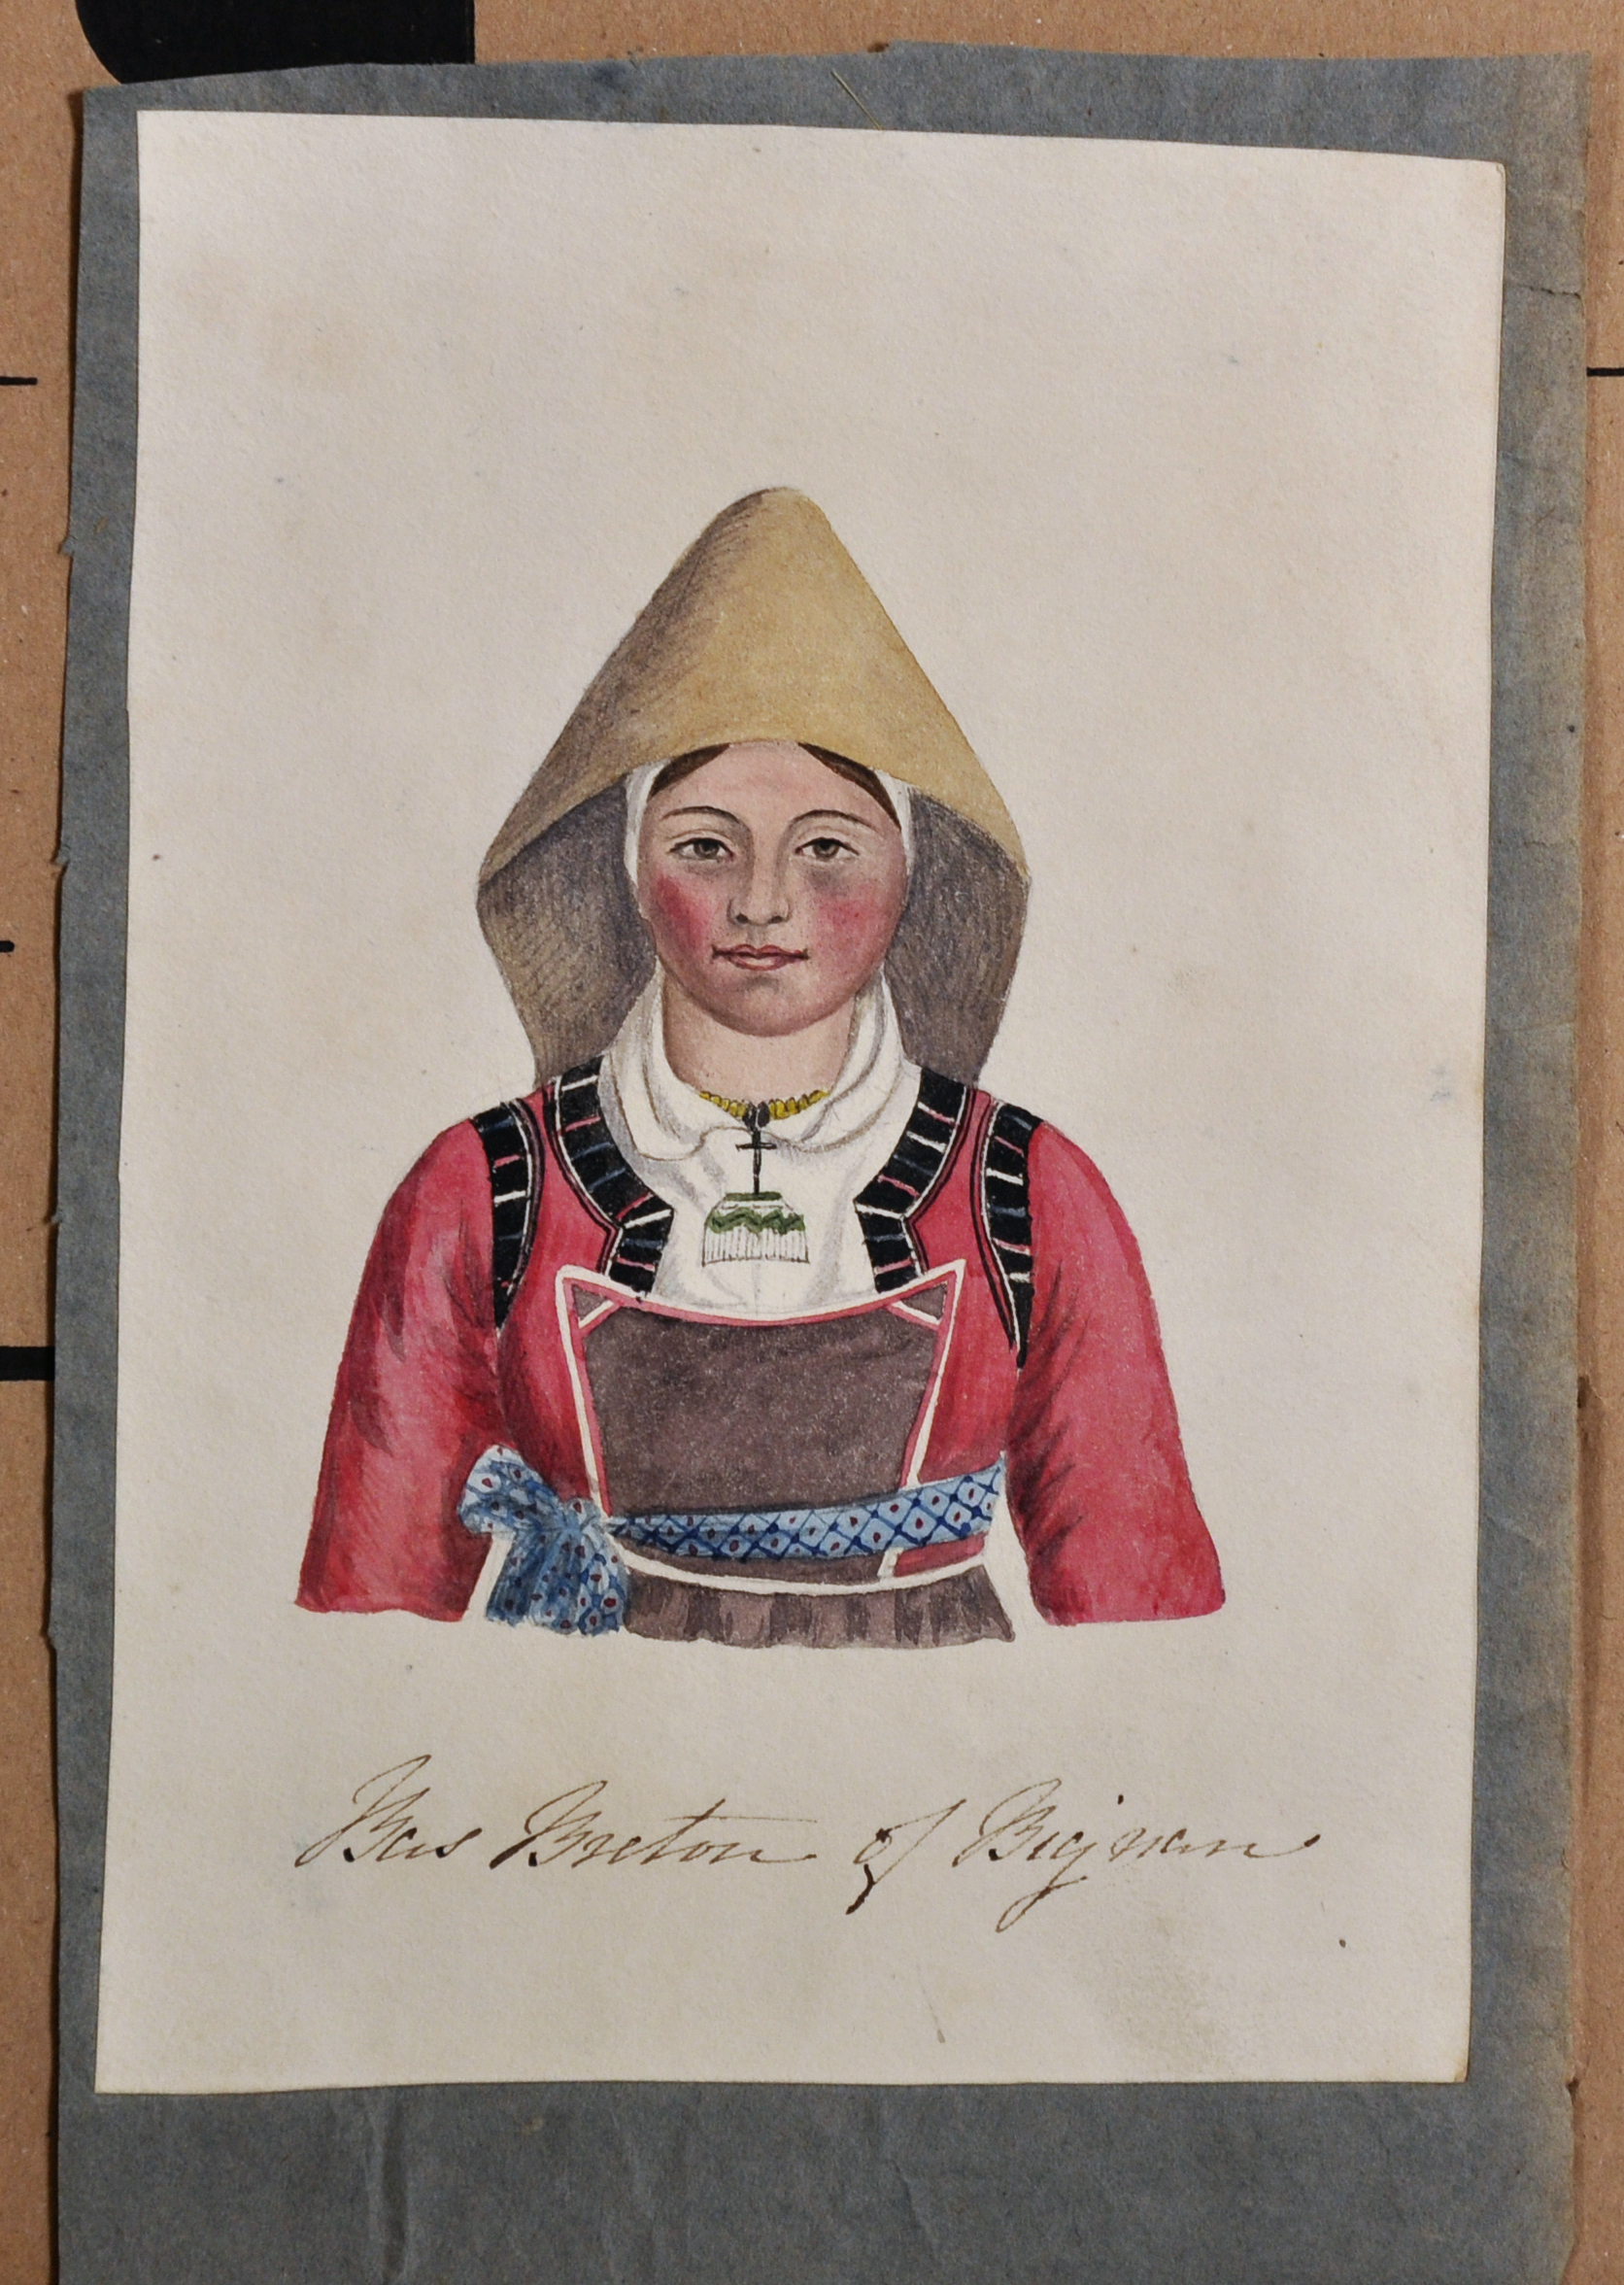 Bas Breton of Bignan